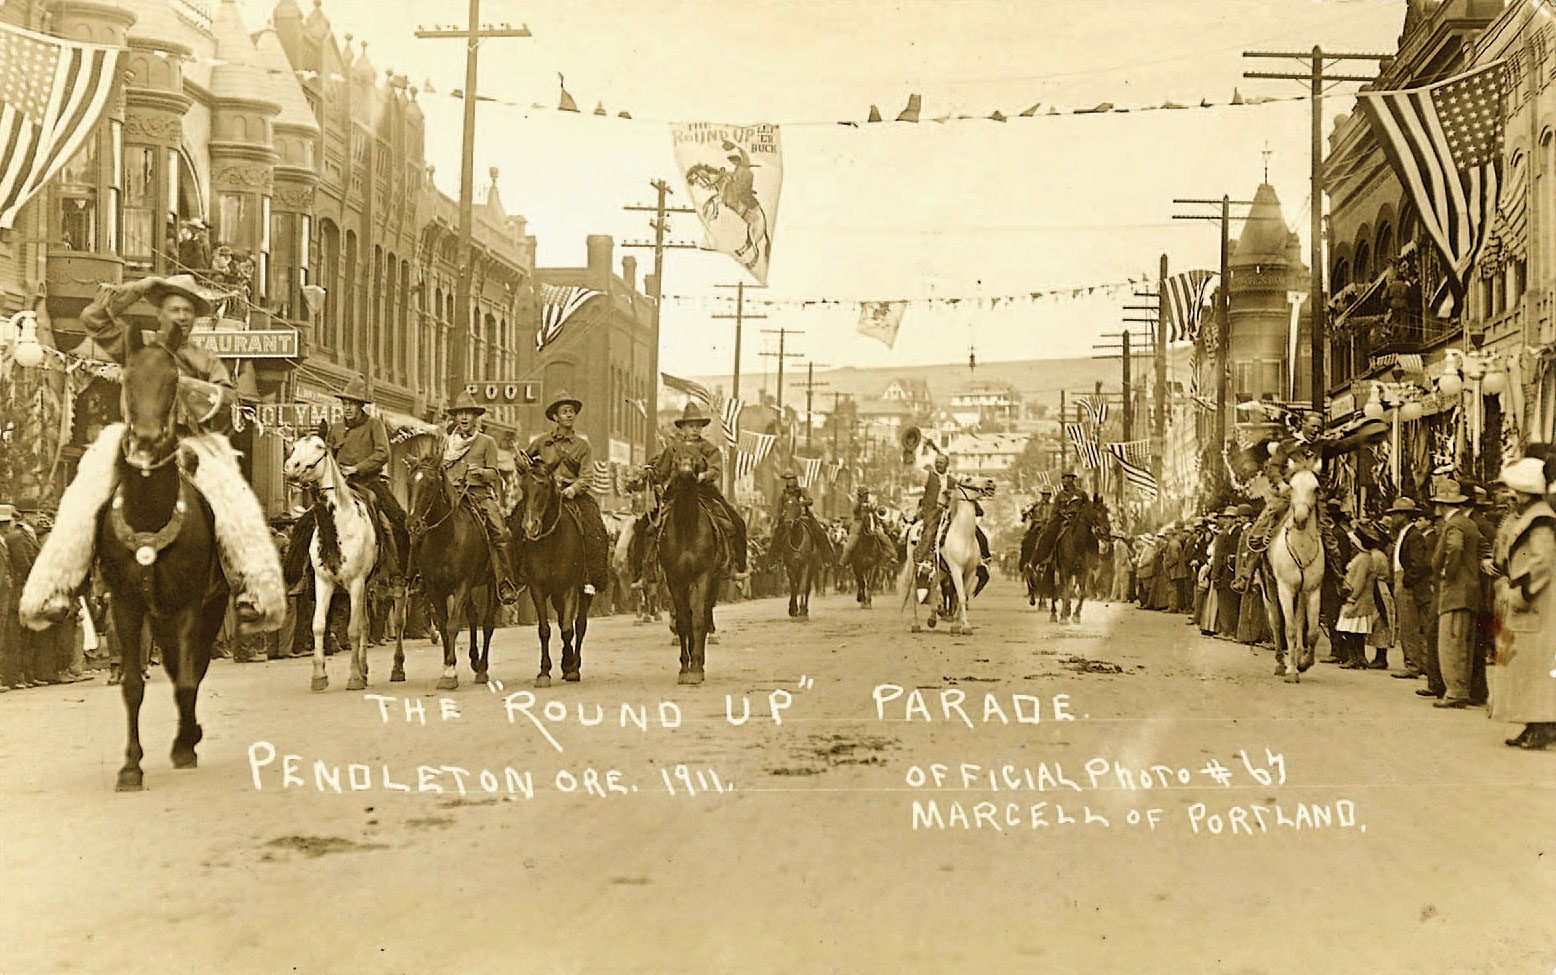 THE ROUND UP
LET 'ER BUCK
TAURANT
POOL
OLYMP
THE "ROUND UP" PARADE.
PENDLETON ORE. 1911.
OFFICIAL PHOTO # 67
MARCELL OF PORTLAND.